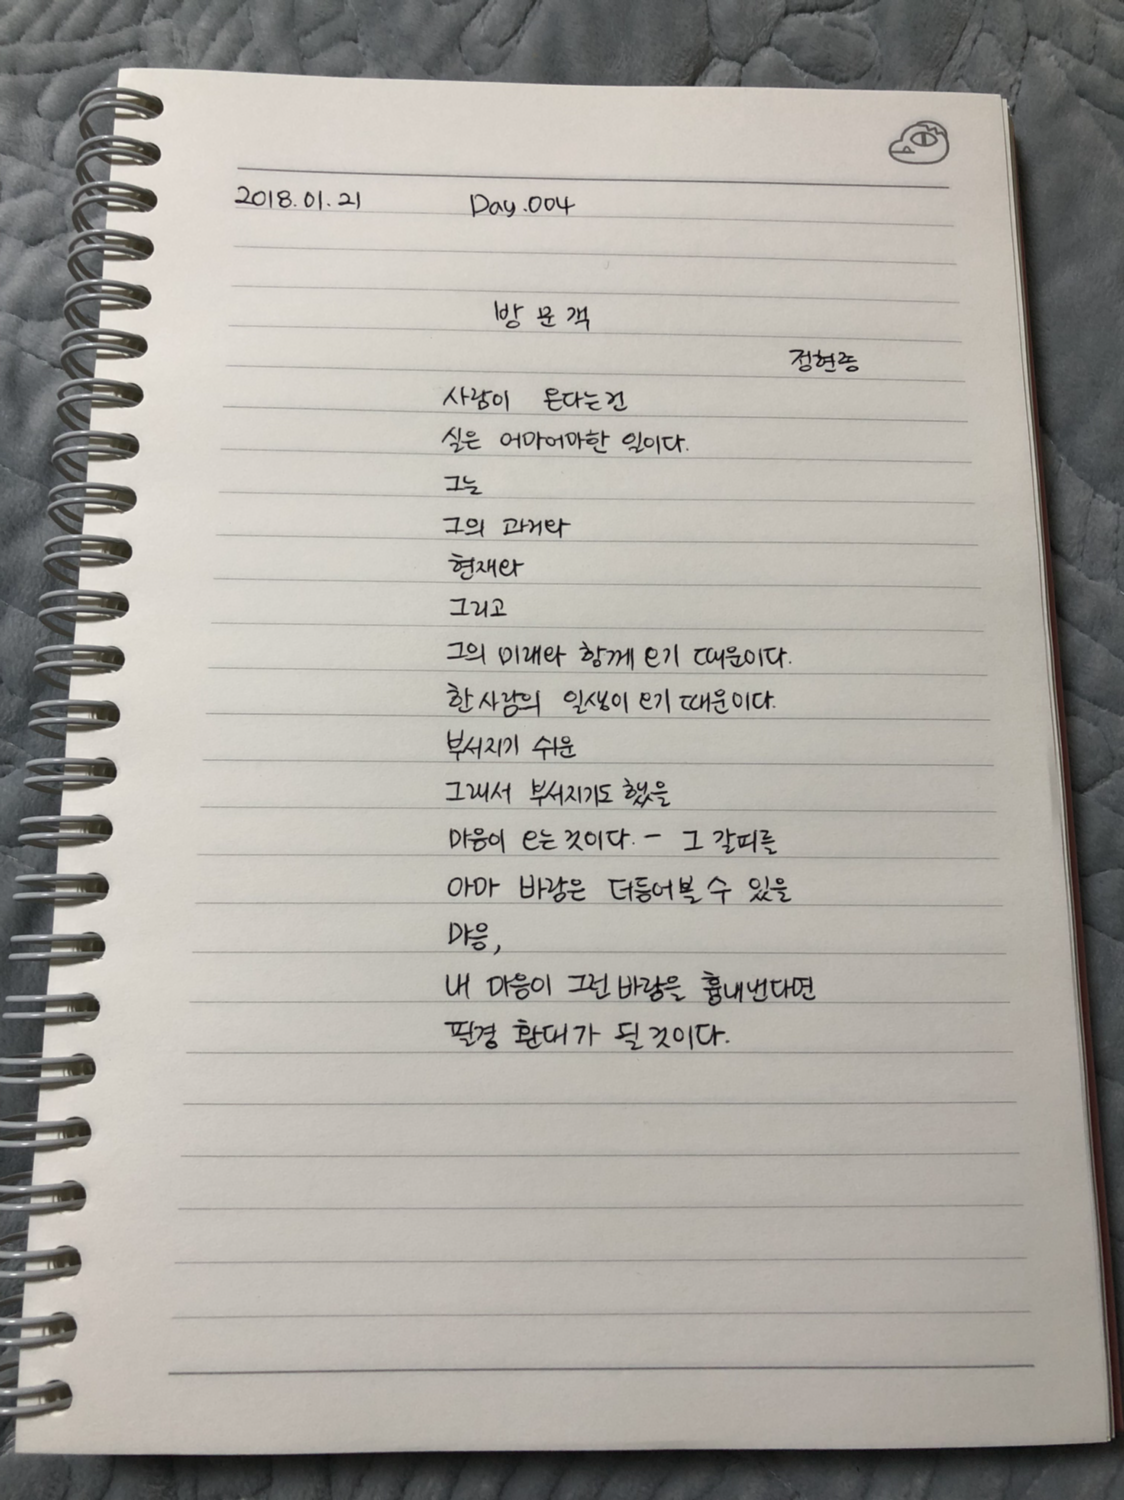 2018.01.21 Day.004
방문객
정현종
사람이 온다는건
실은 어마어마한 일이다.
그는
그의 과거와
현재와
그리고
그의 미래와 함께 오기 때문이다.
한 사람의 일생이 오기 때문이다.
부서지기 쉬운
그래서 부서지기도 했을
마음이 오는 것이다. - 그 갈피를
아마 바람은 더듬어볼 수 있을
마음,
내 마음이 그런 바람을 흉내낸다면
필경 환대가 될 것이다.